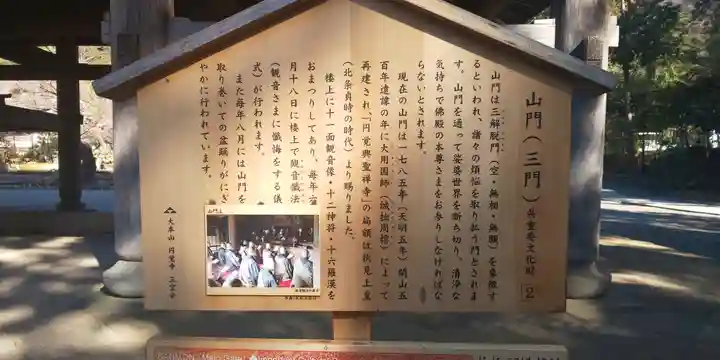 山門（三門）県重要文化財
山門は三解脱門（空・無相・無願）を象徴す
るといわれ、諸々の煩悩を取り払う門とされま
す。山門を通って娑婆世界を断ち切り、清浄な
気持ちで仏殿の本尊さまをお参りしなければな
らないとされます。
現在の山門は一七八五年（天明五年）開山五
百年遠諱の年に大用国師（誠拙周樗）によって
再建され、「円覚興聖禅寺」の扁額は伏見上皇
（北条貞時の時代）より賜りました。
楼上に十一面観音像・十二神将・十六羅漢を
おまつりしてあり、毎年
月十八日に楼上で観音懺法
（観音さまに懺悔をする儀
式）が行われます。
また毎年八月には山門を
取り巻いての盆踊りがにぎ
やかに行われています。
大本山 円覚寺
山門上